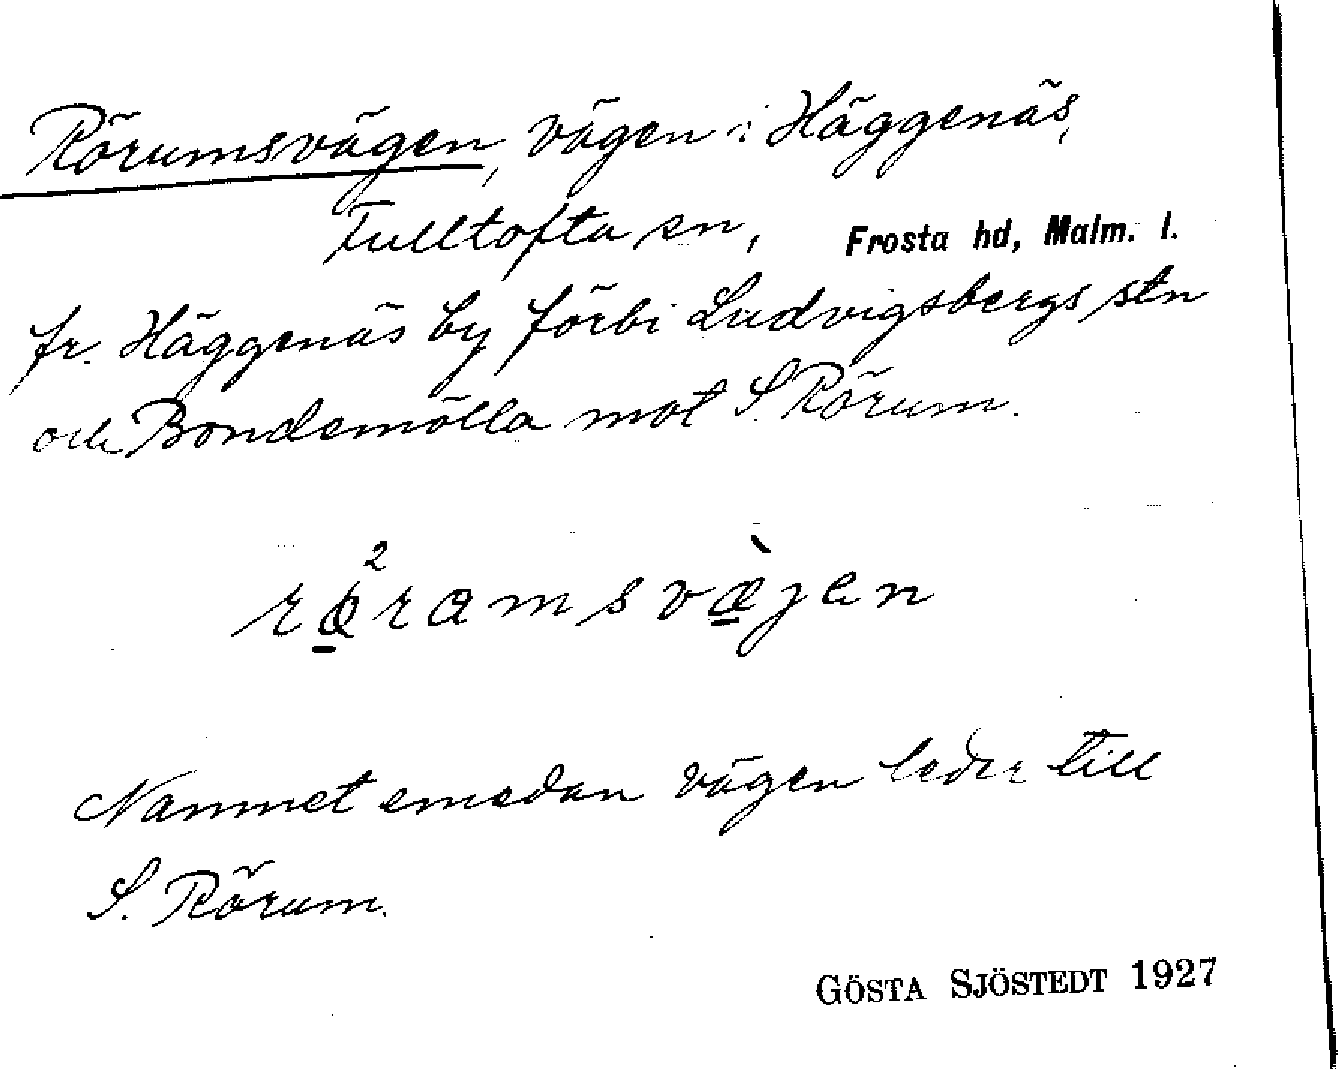 Rörumsvägen, vägen i Häggenäs,
Fulltofta sn, Frosta hd, Malm. l.
fr. Häggenäs by förbi Ludvigsbergs stn
och Bondemölla mot S. Rörum.
Namnet emedan vägen leder till
S. Rörum.
GÖSTA SJÖSTEDT 1927